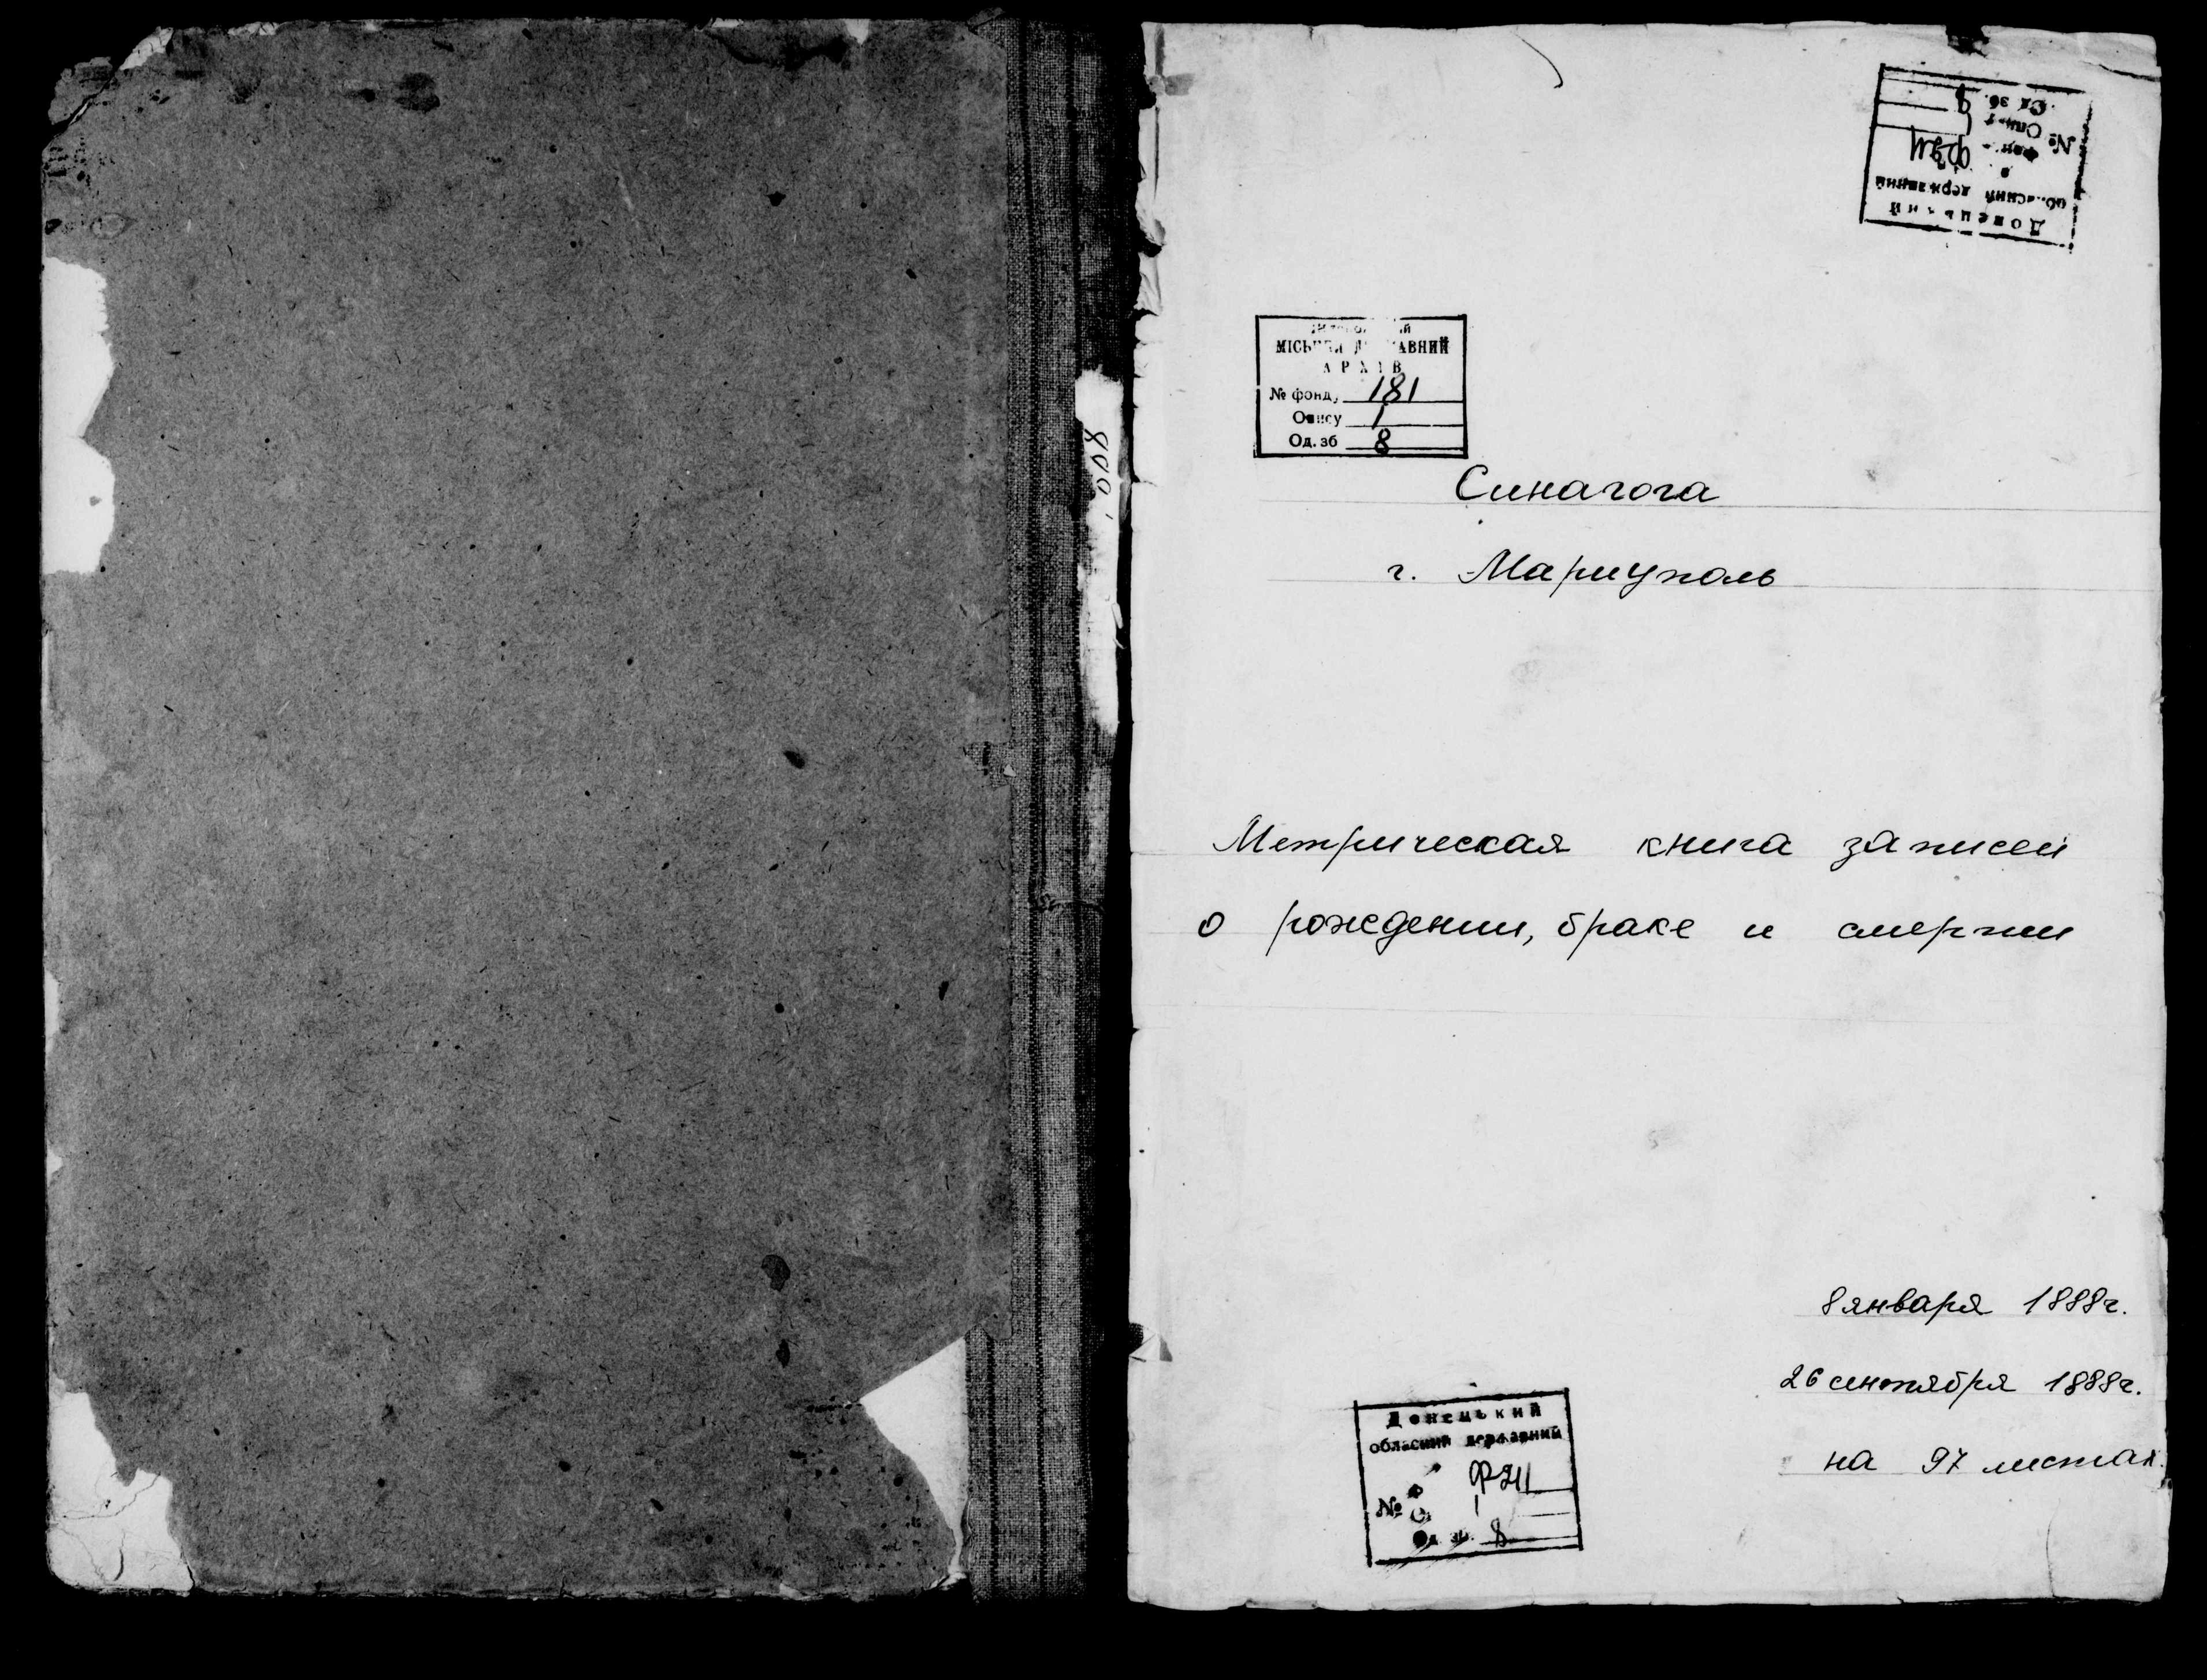 Донецький
обласний державний
№
Од. зб.
МІСЬКИЙ ДЕРЖАВНИЙ
АРХІВ
№ фонду 181
Опису 1
Од. зб 8
Синагога
г. Мариуполь
Метрическая книга записей
о рождении, браке и смерти
8 января 1888г.
26 сентября 1888г.
на 97 листах.
Донецький
обласний державний
Ф211
№ 1
Од. зб. 8